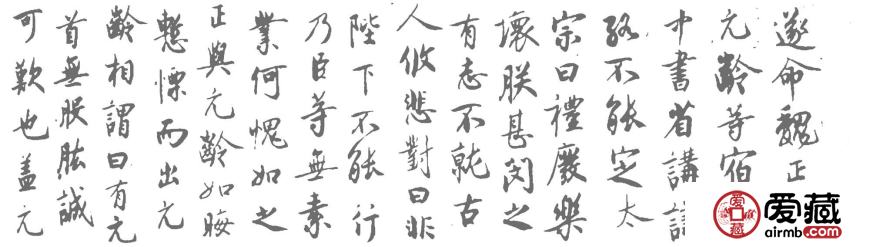 遂命魏正
元齡等宿
中書省講
臵不能定太
宗曰禮廢樂
壞朕甚閔之
有志不就古
人攸悲對曰非
陛下不能行
乃臣等無素
業何愧如之
正與元齡如晦
慙慄而出元
齡相謂曰有元
首無股肱誠
可歎也蓋元
爱藏
airmb.com